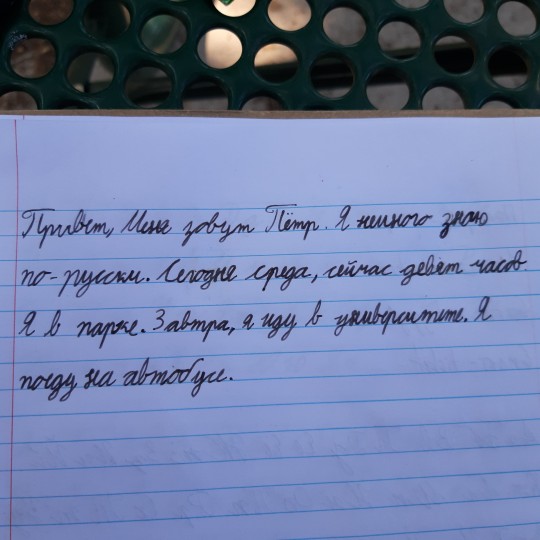 Привет, Меня зовут Пётр. Я немного знаю
по-русски. Сегодня среда, сейчас девят часов.
Я в парке. Завтра, я иду в университете. Я
поеду на автобусе.